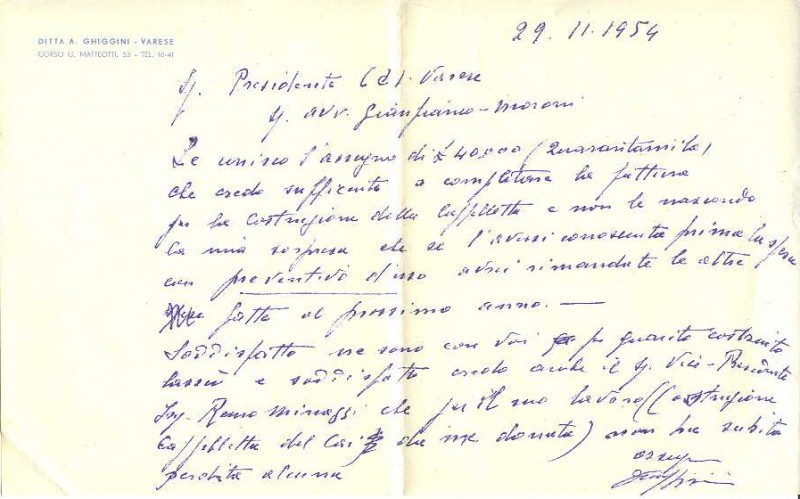 DITTA A. GHIGGINI - VARESE
CORSO G. MATTEOTTI, 53 - TEL. 16-41
29. 11. 1954
Sg. Presidente C.A.I. Varese
Sg. avv. Gianfranco - Moroni
Le unisco l'assegno di £ 40.000 (Quarantamila)
che credo sufficente a completare la fattura
per la Costruzione della Cappelletta e non le nascondo
la mia sorpresa che se l'avessi conosciuta prima la spesa
con preventivo d'uso avrei rimandate le altre
fatte al prossimo anno. —
Soddisfatto ne sono con voi per quanto costruito
lassù e soddisfatto credo anche il Sg. Vice-Presidente
Ing. Remo Minazzi che per il suo lavoro (Costruzione
Cappelletta del Cai da me donata) non ha subita
perdita alcuna